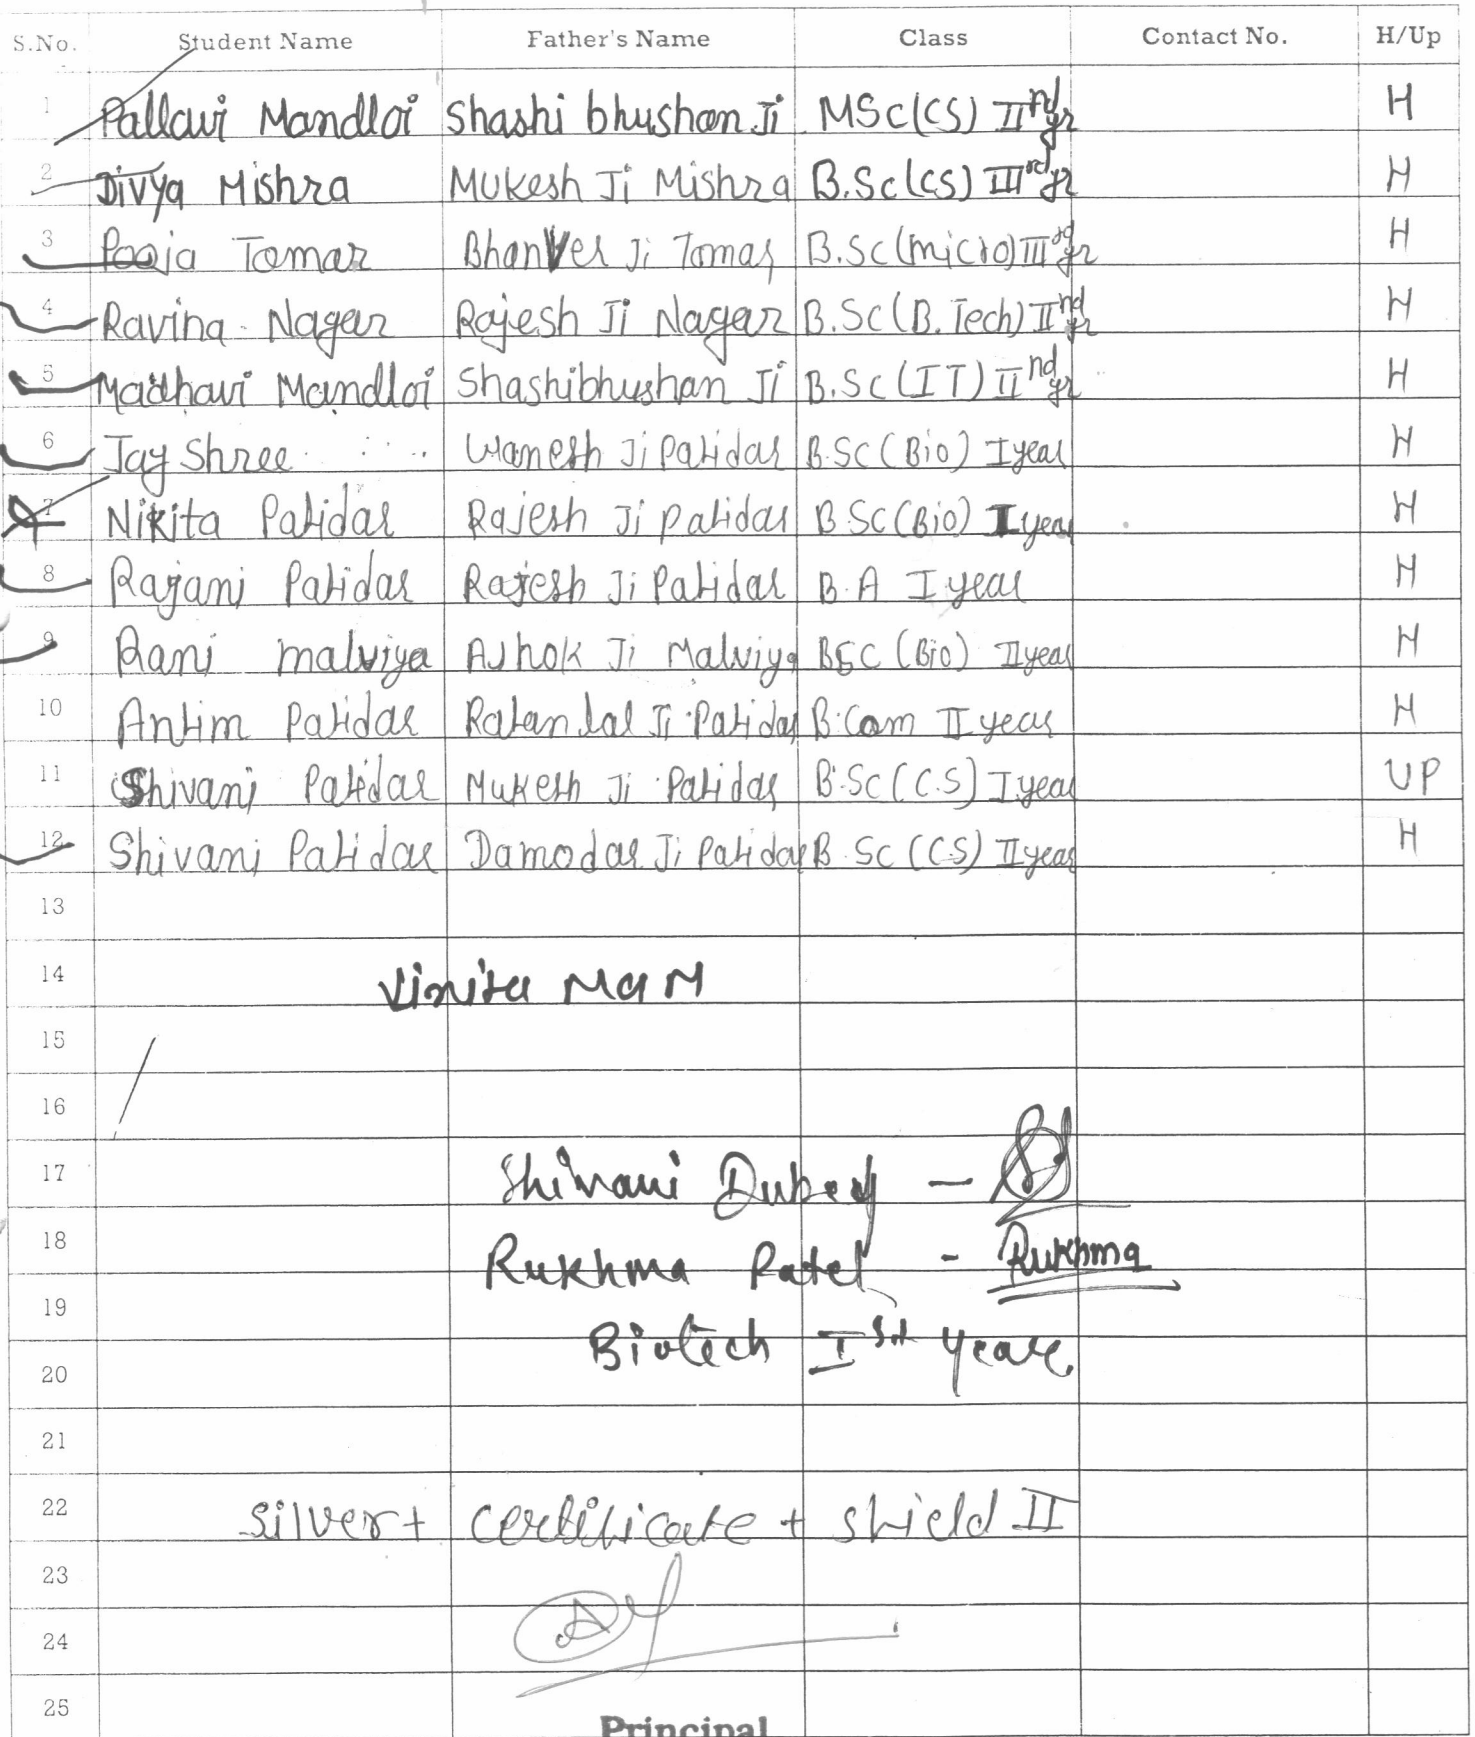 S.No. Student Name Father's Name Class Contact No. H/Up
1 Pallavi Mandloi Shashi bhushan Ji MSc(CS) IInd yr H
2 Divya Mishra Mukesh Ji Mishra B.Sc(CS) IIIrd yr H
3 Pooja Tomar Bhanver Ji Tomar B.Sc(micro) IIIrd yr H
4 Ravina Nagar Rajesh Ji Nagar B.Sc(B.Tech) IInd yr H
5 Madhavi Mandloi Shashibhushan Ji B.Sc(IT) IInd yr H
6 Jay Shree Ji Patidar B.Sc(Bio) I year H
7 Nikita Patidar Rajesh Ji Patidar B.Sc(Bio) I year H
8 Rajani Patidar Rajesh Ji Patidar B.A I year H
9 Rani malviya Ashok Ji Malviya BSC (Bio) II year H
10 Antim Patidar Ratanlal Ji Patidar B.Com II year H
11 Shivani Patidar Mukesh Ji Patidar B.Sc(C.S) I year UP
12 Shivani Patidar Damodar Ji Patidar B.Sc(CS) II year H
13
14 Vinita MaM
15
16
17 Shivani Dubey -
18 Rukhma Patel - Rukhma
19
Biotech Ist Year
20
21
22 silver + certificate + shield II
23
24
25
Principal